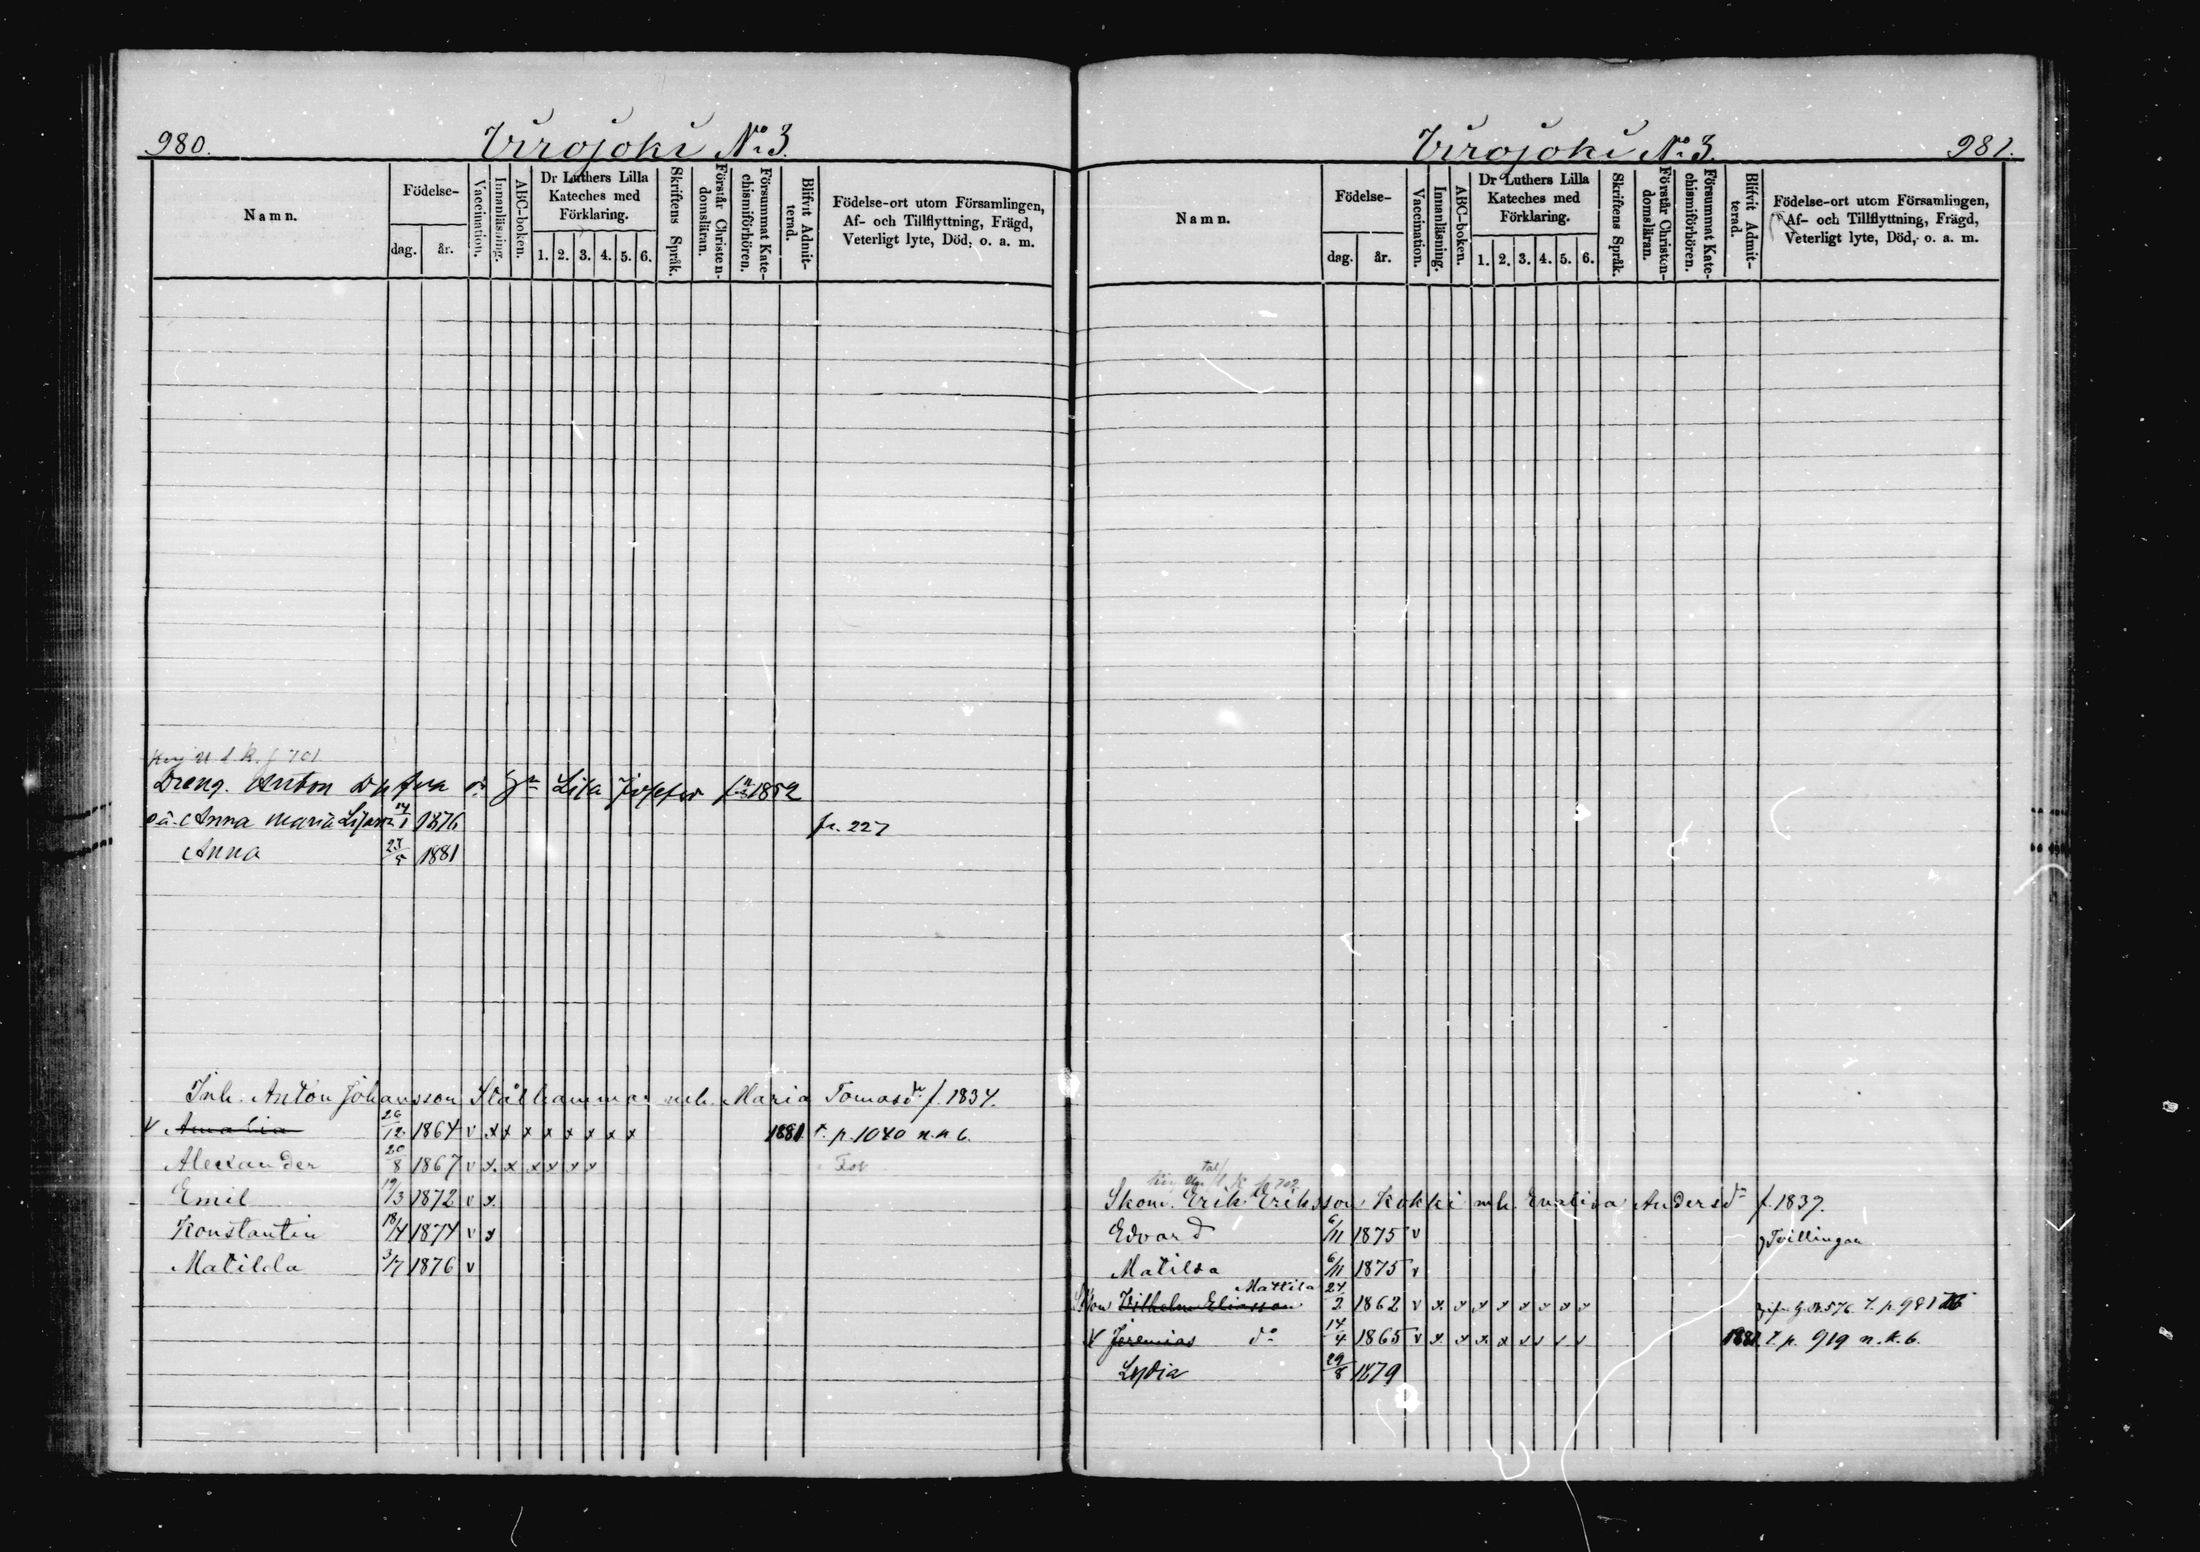 980. Virojoki No 3.
Namn.
Födelse-
dag. år.
Vaccination.
Innanläsning.
ABC-boken.
Dr Luthers Lilla
Kateches med
Förklaring.
1. 2. 3. 4. 5. 6.
Skriftens Språk.
Förstår Christen-
domsläran.
Försummat Kate-
chismiförhören.
Blifvit Admit-
terad.
Födelse-ort utom Församlingen,
Af- och Tillflyttning, Frägd,
Veterligt lyte, Död, o. a. m.
701
Dreng. Anton Lisa 1852
Anna Maria 14/1 1876 fr. 227
Anna 23/5 1881
Inh. Anton Johansson Stålhammar mh. Maria Tomasdr f. 1834.
v Amalia 26/12 1864 v x x x x x x x x 1881 t. p. 1040 n. k. b.
Alexander 20/8 1867 v x x x x x x
Emil 19/3 1872 v x
Konstantin 18/4 1874 v x
Matilda 3/7 1876 v
Virojoki No 3. 981.
Namn.
Födelse-
dag. år.
Vaccination.
Innanläsning.
ABC-boken.
Dr Luthers Lilla
Kateches med
Förklaring.
1. 2. 3. 4. 5. 6.
Skriftens Språk.
Förstår Christen-
domsläran.
Försummat Kate-
chismiförhören.
Blifvit Admit-
terad.
Födelse-ort utom Församlingen,
Af- och Tillflyttning, Frägd,
Veterligt lyte, Död, o. a. m.
702
Skom. Erik Eriksson Kokki mh. Evalisa Andersdr f. 1839.
Edvard 6/11 1875 v Tvillingar
Matilda 6/11 1875 v
Mattila
Wilhelm Eliasson 24/2 1862 v x x x x x x x x 576 t. p. 981
v Jeremias do 14/4 1865 v x x x x x x x x 1881 t. p. 919 n. k. b.
Lydia 29/8 1879